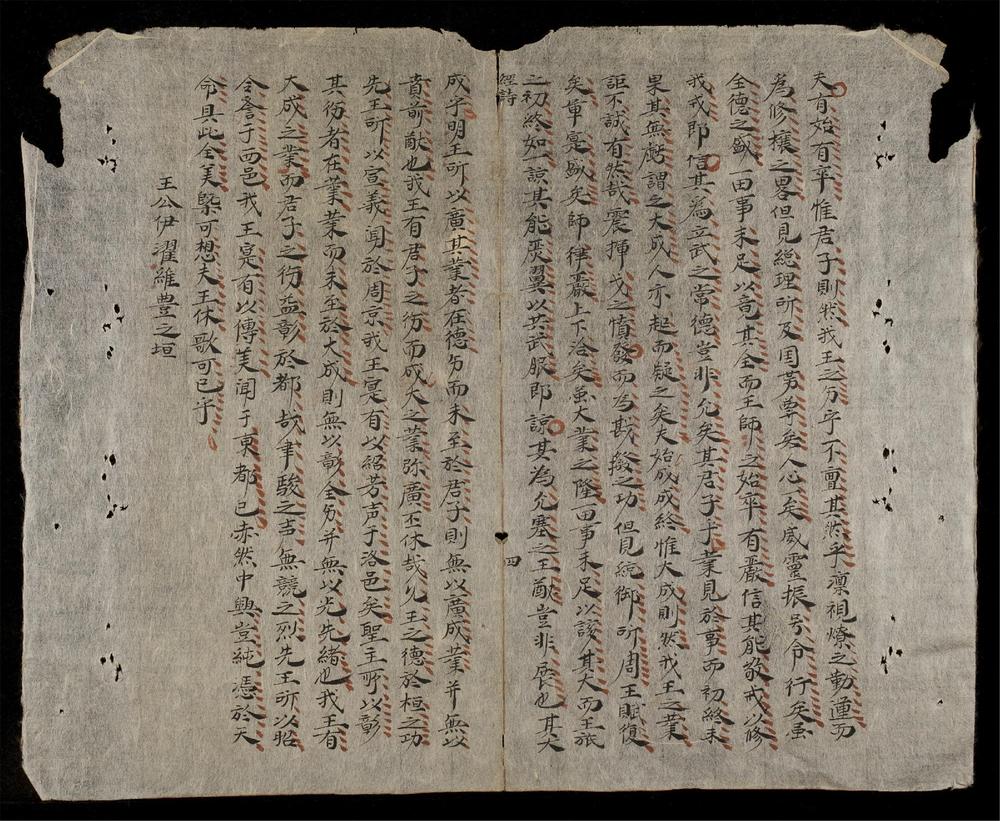 夫有始有卒惟君子則然我王之身乎不亶其然乎凜視燎之勤運而
為修攘之畧但見総理所及周芳尊矣人心矣威靈振号令行矣虽
全德之盛一田事未足以竒其全而王師之始卒有嚴信其能敬戒以修
我戎即信其為立武之常德豈非允矣其君子乎業見於事而初終未
果其無虧謂之大成人亦起而疑之矣夫始成成終惟大成則然我王之業
詎不誠有然哉震揮戈之憤發而為戡撥之功但見統御所周王賦復
矣軍寔盛矣師律嚴上下洽矣虽大業之隆一田事未足以該其大而王旅
之初終如一諒其能嚴翼以共武服即諒其為允塞之王猷豈非展也其大
經詩
四
成乎明王所以廣其業者在德身而未至於君子則無以廣成業并無以
賁前猷也我王有君子之行而成大之業弥廣丕休哉允王之德於桓之功
先王所以宣義聞於周京我王寔有以紹芳声于洛邑矣聖主所以彰
其行者在業業而未至於大成則無以彰全身并無以光先緒也我王有
大成之業而君子之行益彰於都哉聿駿之吉無競之烈先王所以昭
令誉于西邑我王寔有以傳美聞于東都已赤然中興豈純憑於天
命具此全美槩可想夫王休歌可已乎
王公伊濯維豊之垣